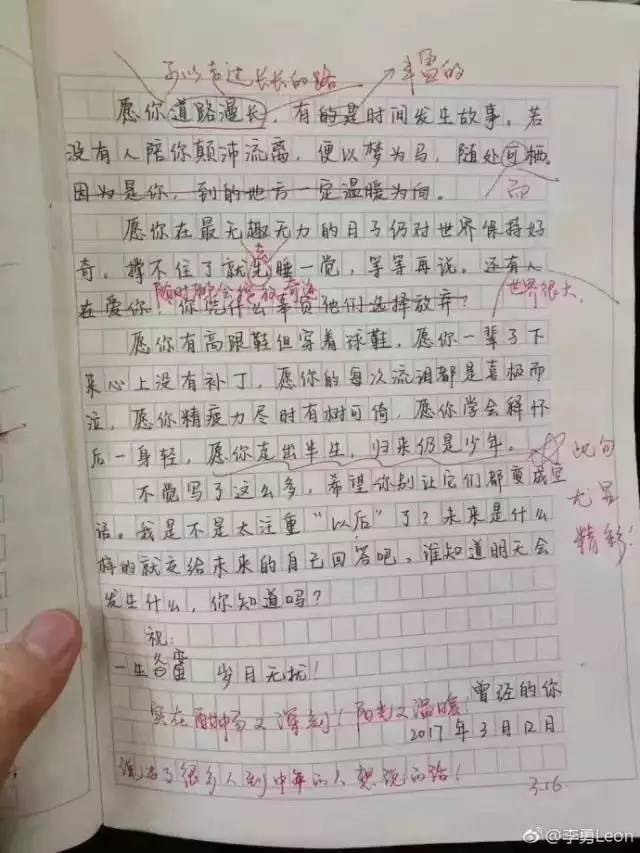 可以走过长长的路 丰富的
愿你道路漫长，有的是时间发生故事。若
没有人陪你颠沛流离，便以梦为马，随处可栖。
因为是你，到的地方一定温暖为向。
而
愿你在最无趣无力的日子仍对世界保持好
奇，撑不住了就先睡一觉，等等再说。还有人
随时都会撞放奇迹 世界很大，
在爱你，你凭什么辜负他们选择放弃？
愿你有高跟鞋但穿着球鞋，愿你一辈子下
来心上没有补丁，愿你的每次流泪都是喜极而
泣，愿你精疲力尽时有树可倚，愿你学会释怀
后一身轻，愿你走出半生，归来仍是少年。
此句
尤其
精彩！
不觉写了这么多，希望你别让它们都变成空
话。我是不是太注重“以后”了？未来是什么
样的就交给未来的自己回答吧，谁知道明天会
发生什么，你知道吗？
祝：
一生 岁月无扰！
曾经的你
实在酣畅又深刻！阳光又温暖！
2017年3月12日
说出了很多人到中年的人想说的话！
3.16
@李勇Leon